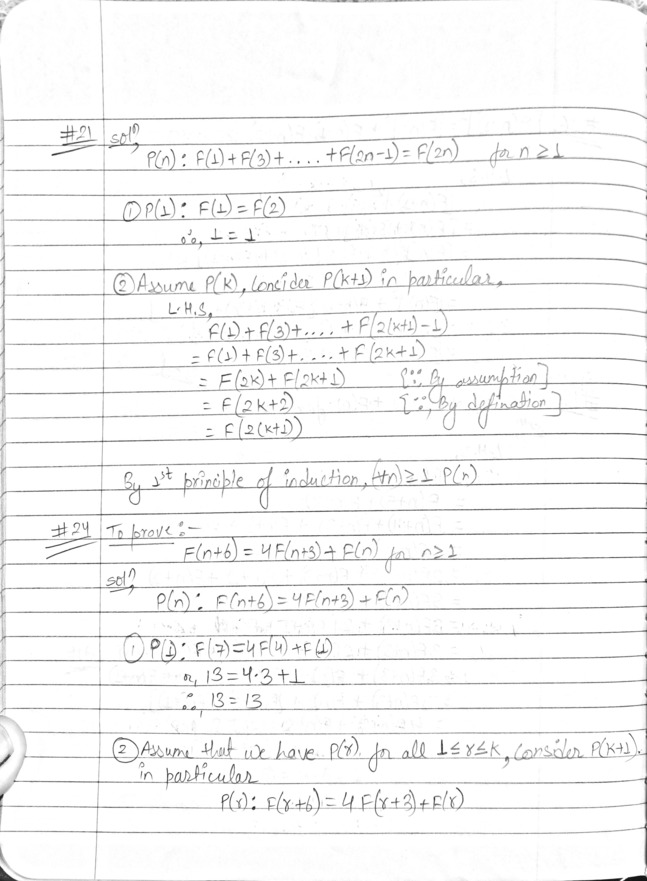 #21 solⁿ,
P(n): F(1)+F(3)+....+F(2n-1)=F(2n) for n≥1
① P(1): F(1)=F(2)
∴, 1=1
② Assume P(k), Consider P(k+1) in particular,
L.H.S,
F(1)+F(3)+....+F(2(k+1)-1)
= F(1)+F(3)+....+F(2k+1)
= F(2k)+F(2k+1) [∵, By assumption]
= F(2k+2) [∵, By defination]
= F(2(k+1))
By 1st principle of induction, (∀n)≥1 P(n)
#24 To prove:-
F(n+6)=4F(n+3)+F(n) for n≥1
solⁿ,
P(n): F(n+6)=4F(n+3)+F(n)
① P(1): F(7)=4F(4)+F(1)
or, 13=4·3+1
∴, 13=13
② Assume that we have P(r) for all 1≤r≤k, Consider P(k+1).
in particular
P(r): F(r+6)=4F(r+3)+F(r)